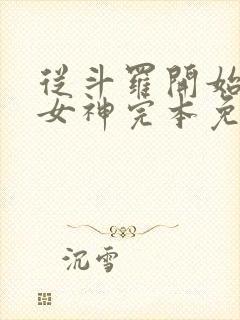 從斗羅開始
女神完本免
沉雪